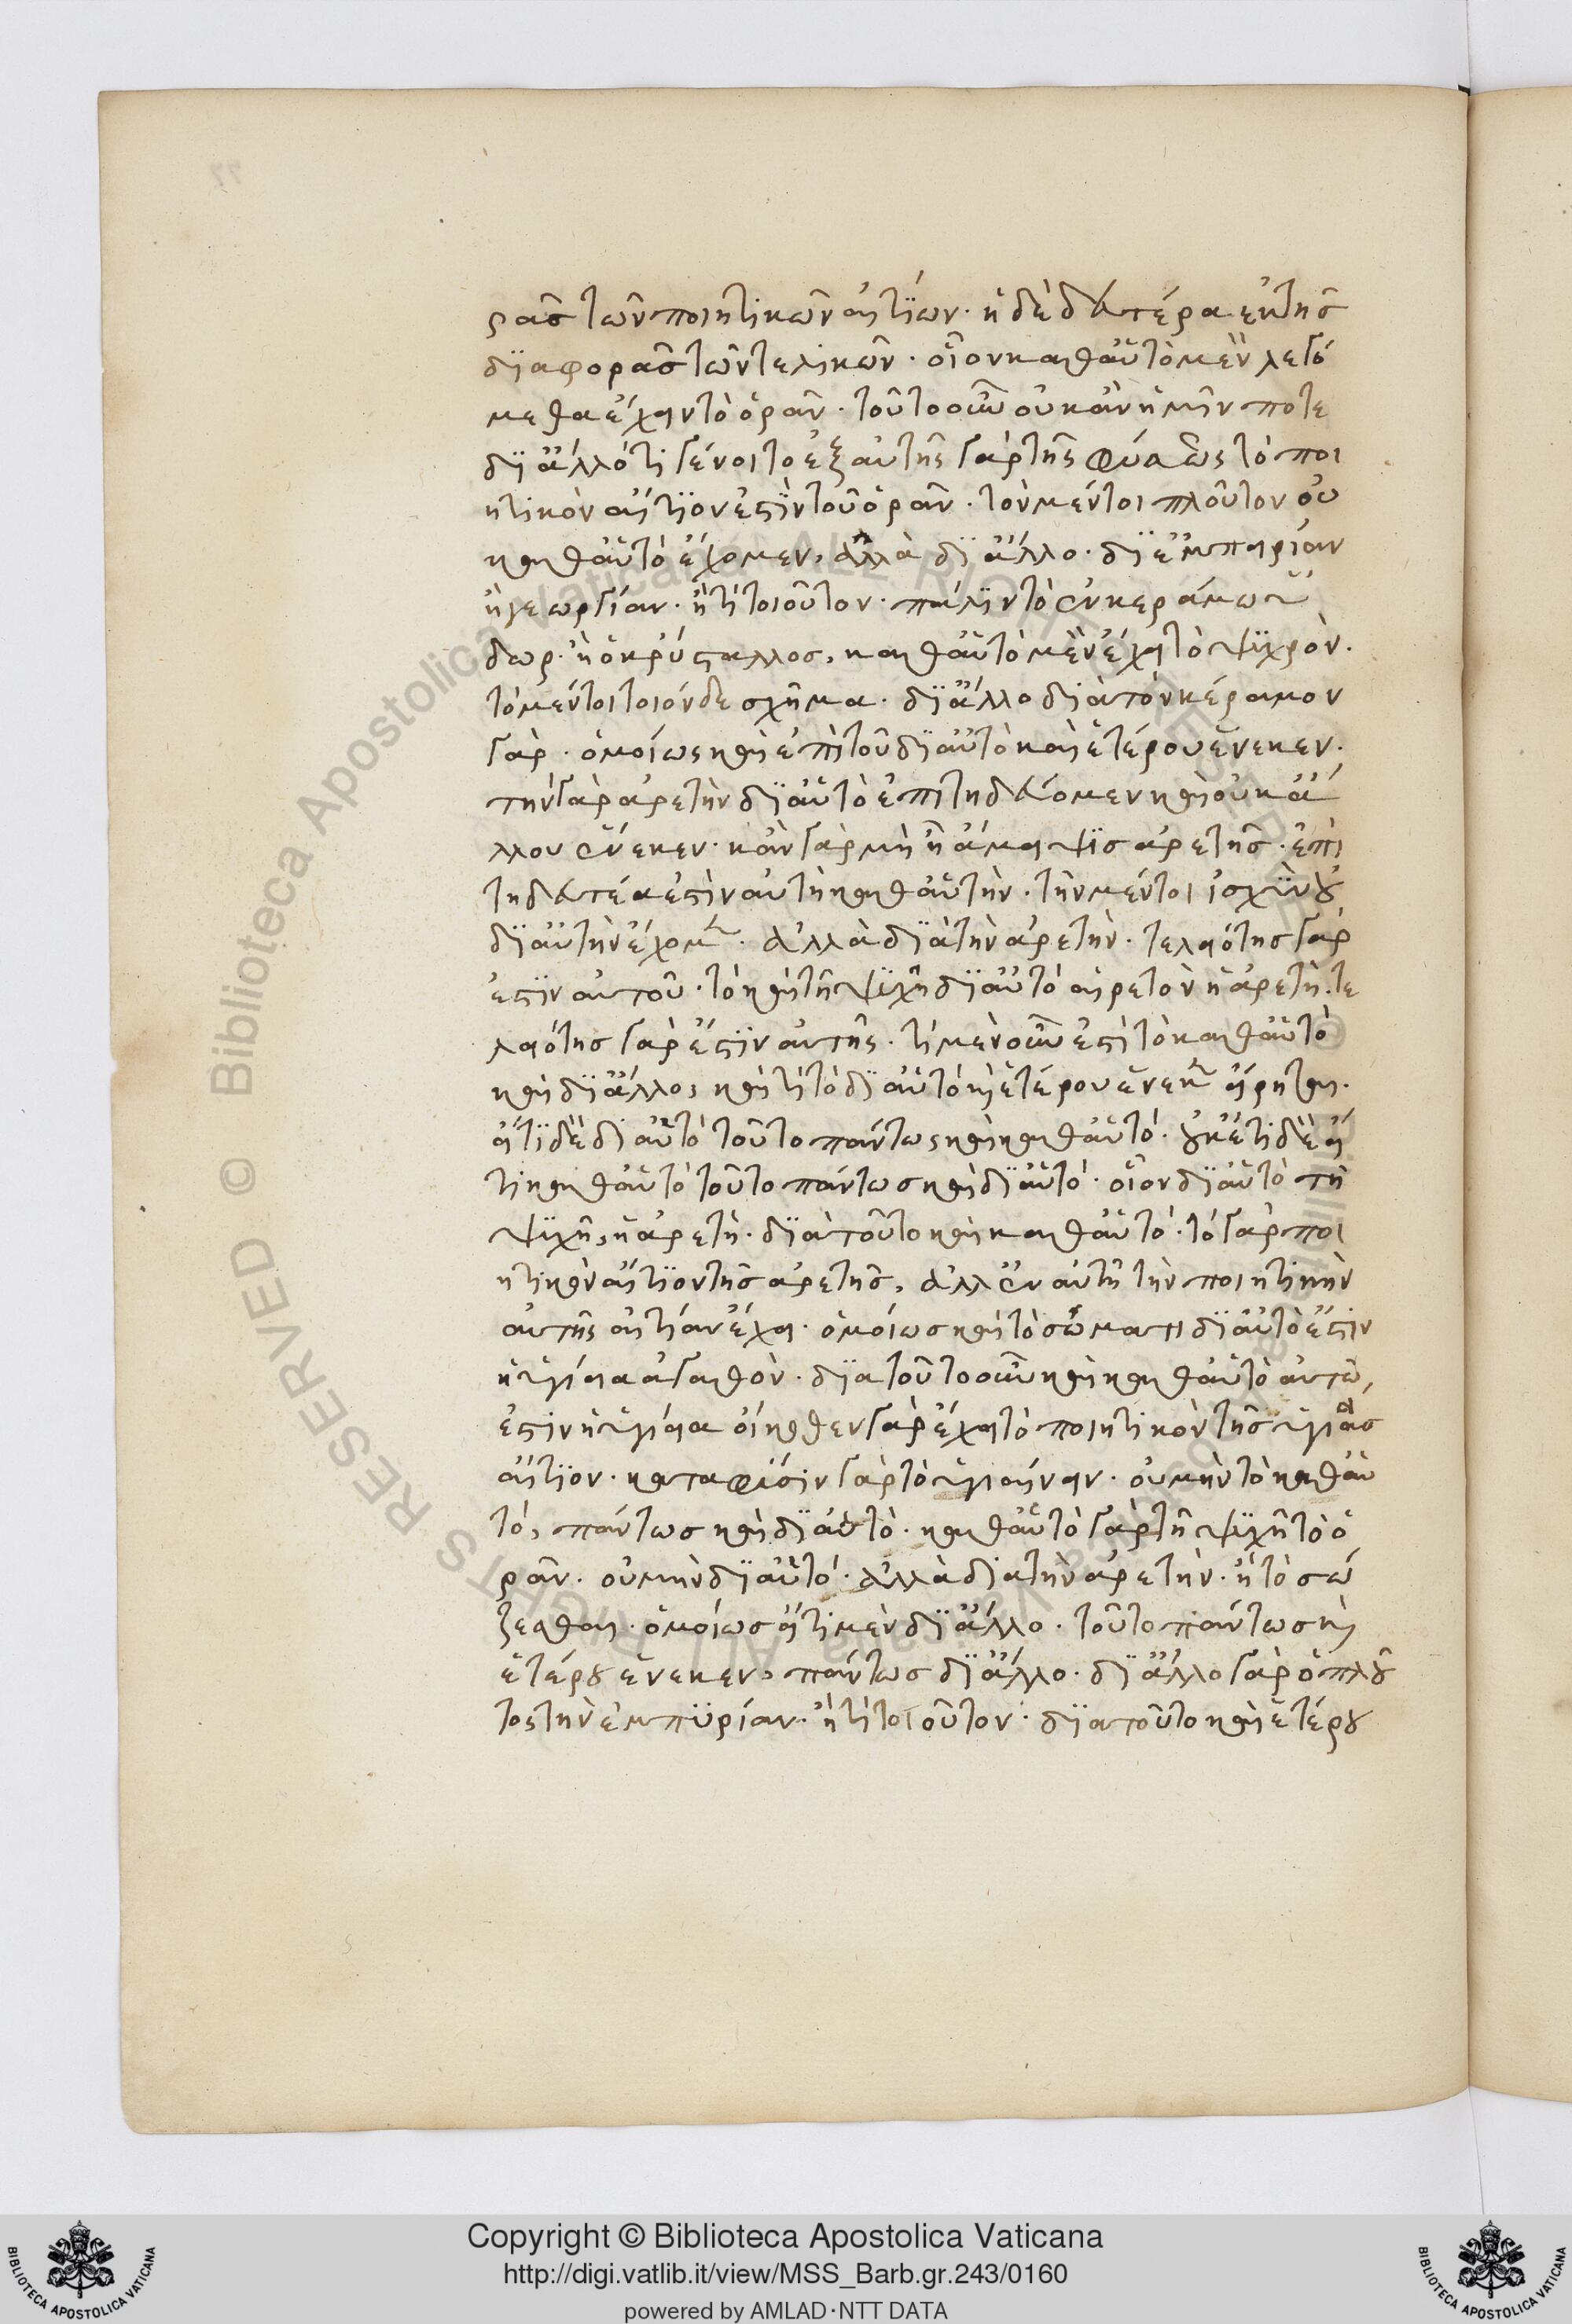 ρας τῶν ποιητικῶν αἰτίων· ἡ δὲ δευτέρα ἐκ τῆς
διαφορᾶς τῶν τελικῶν· οἷον καθ' αὑτὸ μὲν λεγό
μεθα ἔχειν τὸ ὁρᾶν· τοῦτο οὖν οὐκ ἂν ἡμῖν ποτε
δι' ἄλλό τι γένοιτο ἐξ αὐτῆς γὰρ τῆς φύσεως τὸ ποι
ητικὸν αἴτιον ἐστὶν τοῦ ὁρᾶν· τὸν μέντοι πλοῦτον οὐ
καθ' αὑτὸ ἔχομεν, ἀλλὰ δι' ἄλλο· δι' ἐμπειρίαν
ἢ γεωργίαν· ἤ τι τοιοῦτον· πάλιν τὸ ἐν κεράμω ὕ
δωρ· ἢ ὁ κρύσταλλος, καθ' αὑτὸ μὲν ἔχει τὸ ψυχρὸν·
τὸ μέντοι τοιόνδε σχῆμα· δι' ἄλλο διὰ τὸν κέραμον
γὰρ· ὁμοίως καὶ ἐπὶ τοῦ δι' αὑτὸ καὶ ἑτέρου ἕνεκεν·
τὴν γὰρ ἀρετὴν δι' αὑτὸ ἐπιτηδεύομεν καὶ οὐκ ἄ
λλου ἕνεκεν· κἂν γὰρ μὴ ᾖ ἀμειψις ἀρετῆς· ἐπι
τηδευτέα ἐστὶν αὐτὴ καθ' αὑτὴν· τὴν μέντοι ἰσχὺν οὐ
δι' αὐτὴν ἔχομεν· ἀλλὰ διὰ τὴν ἀρετὴν· τελειότης γάρ
ἐστιν αὐτοῦ· τὸ καὶ τῇ ψυχῇ δι' αὑτὸ αἱρετὸν ἡ ἀρετὴ· τε
λειότης γάρ ἐστιν αὐτῆς· τί μὲν οὖν ἐστὶ τὸ καθ' αὑτὸ
καὶ δι' ἄλλο, καὶ τί τὸ δι' αὑτὸ καὶ ἑτέρου ἕνεκεν εἴρηται·
εἴ τι δὲ δι' αὑτὸ τοῦτο πάντως καὶ καθ' αὑτὸ· οὐκέτι δὲ εἴ
τι καθ' αὑτὸ τοῦτο πάντως καὶ δι' αὑτό· οἷον δι' αὑτὸ τῇ
ψυχῇ, ἡ ἀρετὴ· διὰ τοῦτο καὶ καθ' αὑτό· τὸ γὰρ ποι
ητικὸν αἴτιον τῆς ἀρετῆς, ἀλλ' ἐν αὐτῇ τὴν ποιητικὴν
αὐτῆς αἰτίαν ἔχει· ὁμοίως καὶ τὸ σώματι δι' αὑτὸ ἐστὶν
ἡ ὑγίεια ἀγαθὸν· διὰ τοῦτο οὖν καὶ καθ' αὑτὸ αὐτῶ,
ἐστὶν ἡ ὑγίεια οἴκοθεν γὰρ ἔχει τὸ ποιητικὸν τῆς ὑγιείας
αἴτιον· κατὰ φύσιν γὰρ τὸ ὑγιαίνειν· οὐ μὴν τὸ καθ' αὑ
τό, πάντως καὶ δι' αὑτὸ· καθ' αὑτὸ γὰρ τῇ ψυχῇ τὸ ὁ
ρᾶν· οὐ μὴν δι' αὑτό· ἀλλὰ διὰ τὴν ἀρετὴν· ἢ τὸ σώ
ζεσθαι· ὁμοίως εἴ τι μὲν δι' ἄλλο· τοῦτο πάντως καὶ
ἑτέρου ἕνεκεν, πάντως δι' ἄλλο· δι' ἄλλο γὰρ ὁ πλοῦ
τος τὴν ἐμπυρίαν· ἤ τι τοιοῦτον· διὰ τοῦτο καὶ ἑτέρου
Copyright © Biblioteca Apostolica Vaticana
http://digi.vatlib.it/view/MSS_Barb.gr.243/0160
powered by AMLAD·NTT DATA